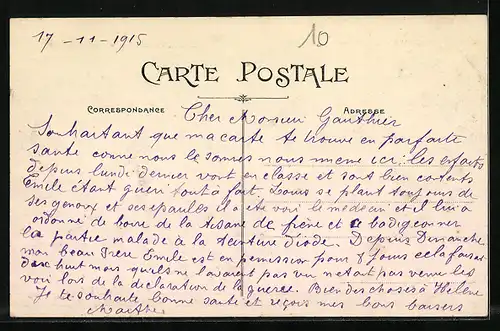 17 - 11 - 1915
10
CARTE POSTALE
CORRESPONDANCE
ADRESSE
Cher Monsieur Gauthier
Souhaitant que ma carte te trouve en parfaite
sante comme nous le sommes nous meme ici. les enfants
depuis lundi dernier vont en classe et sont bien contents
Emile étant gueri tout à fait. Louis se plant toujours de
ses genoux et ses epaules il a été voir le medecin et il lui a
ordonne de boire de la tisane de frène et badigeonner
la partie malade à la teinture d'iode. Depuis Dimanche
mon beau frère Emile est en permission pour 8 jours cela faisait
dix huit mois qu'ils ne l'avaient pas vu n'etait pas venu les
voir lors de la declaration de la guerre. Bien des choses à Helène
Je te souhaite bonne sante et reçois mes bons baisers
Marthe